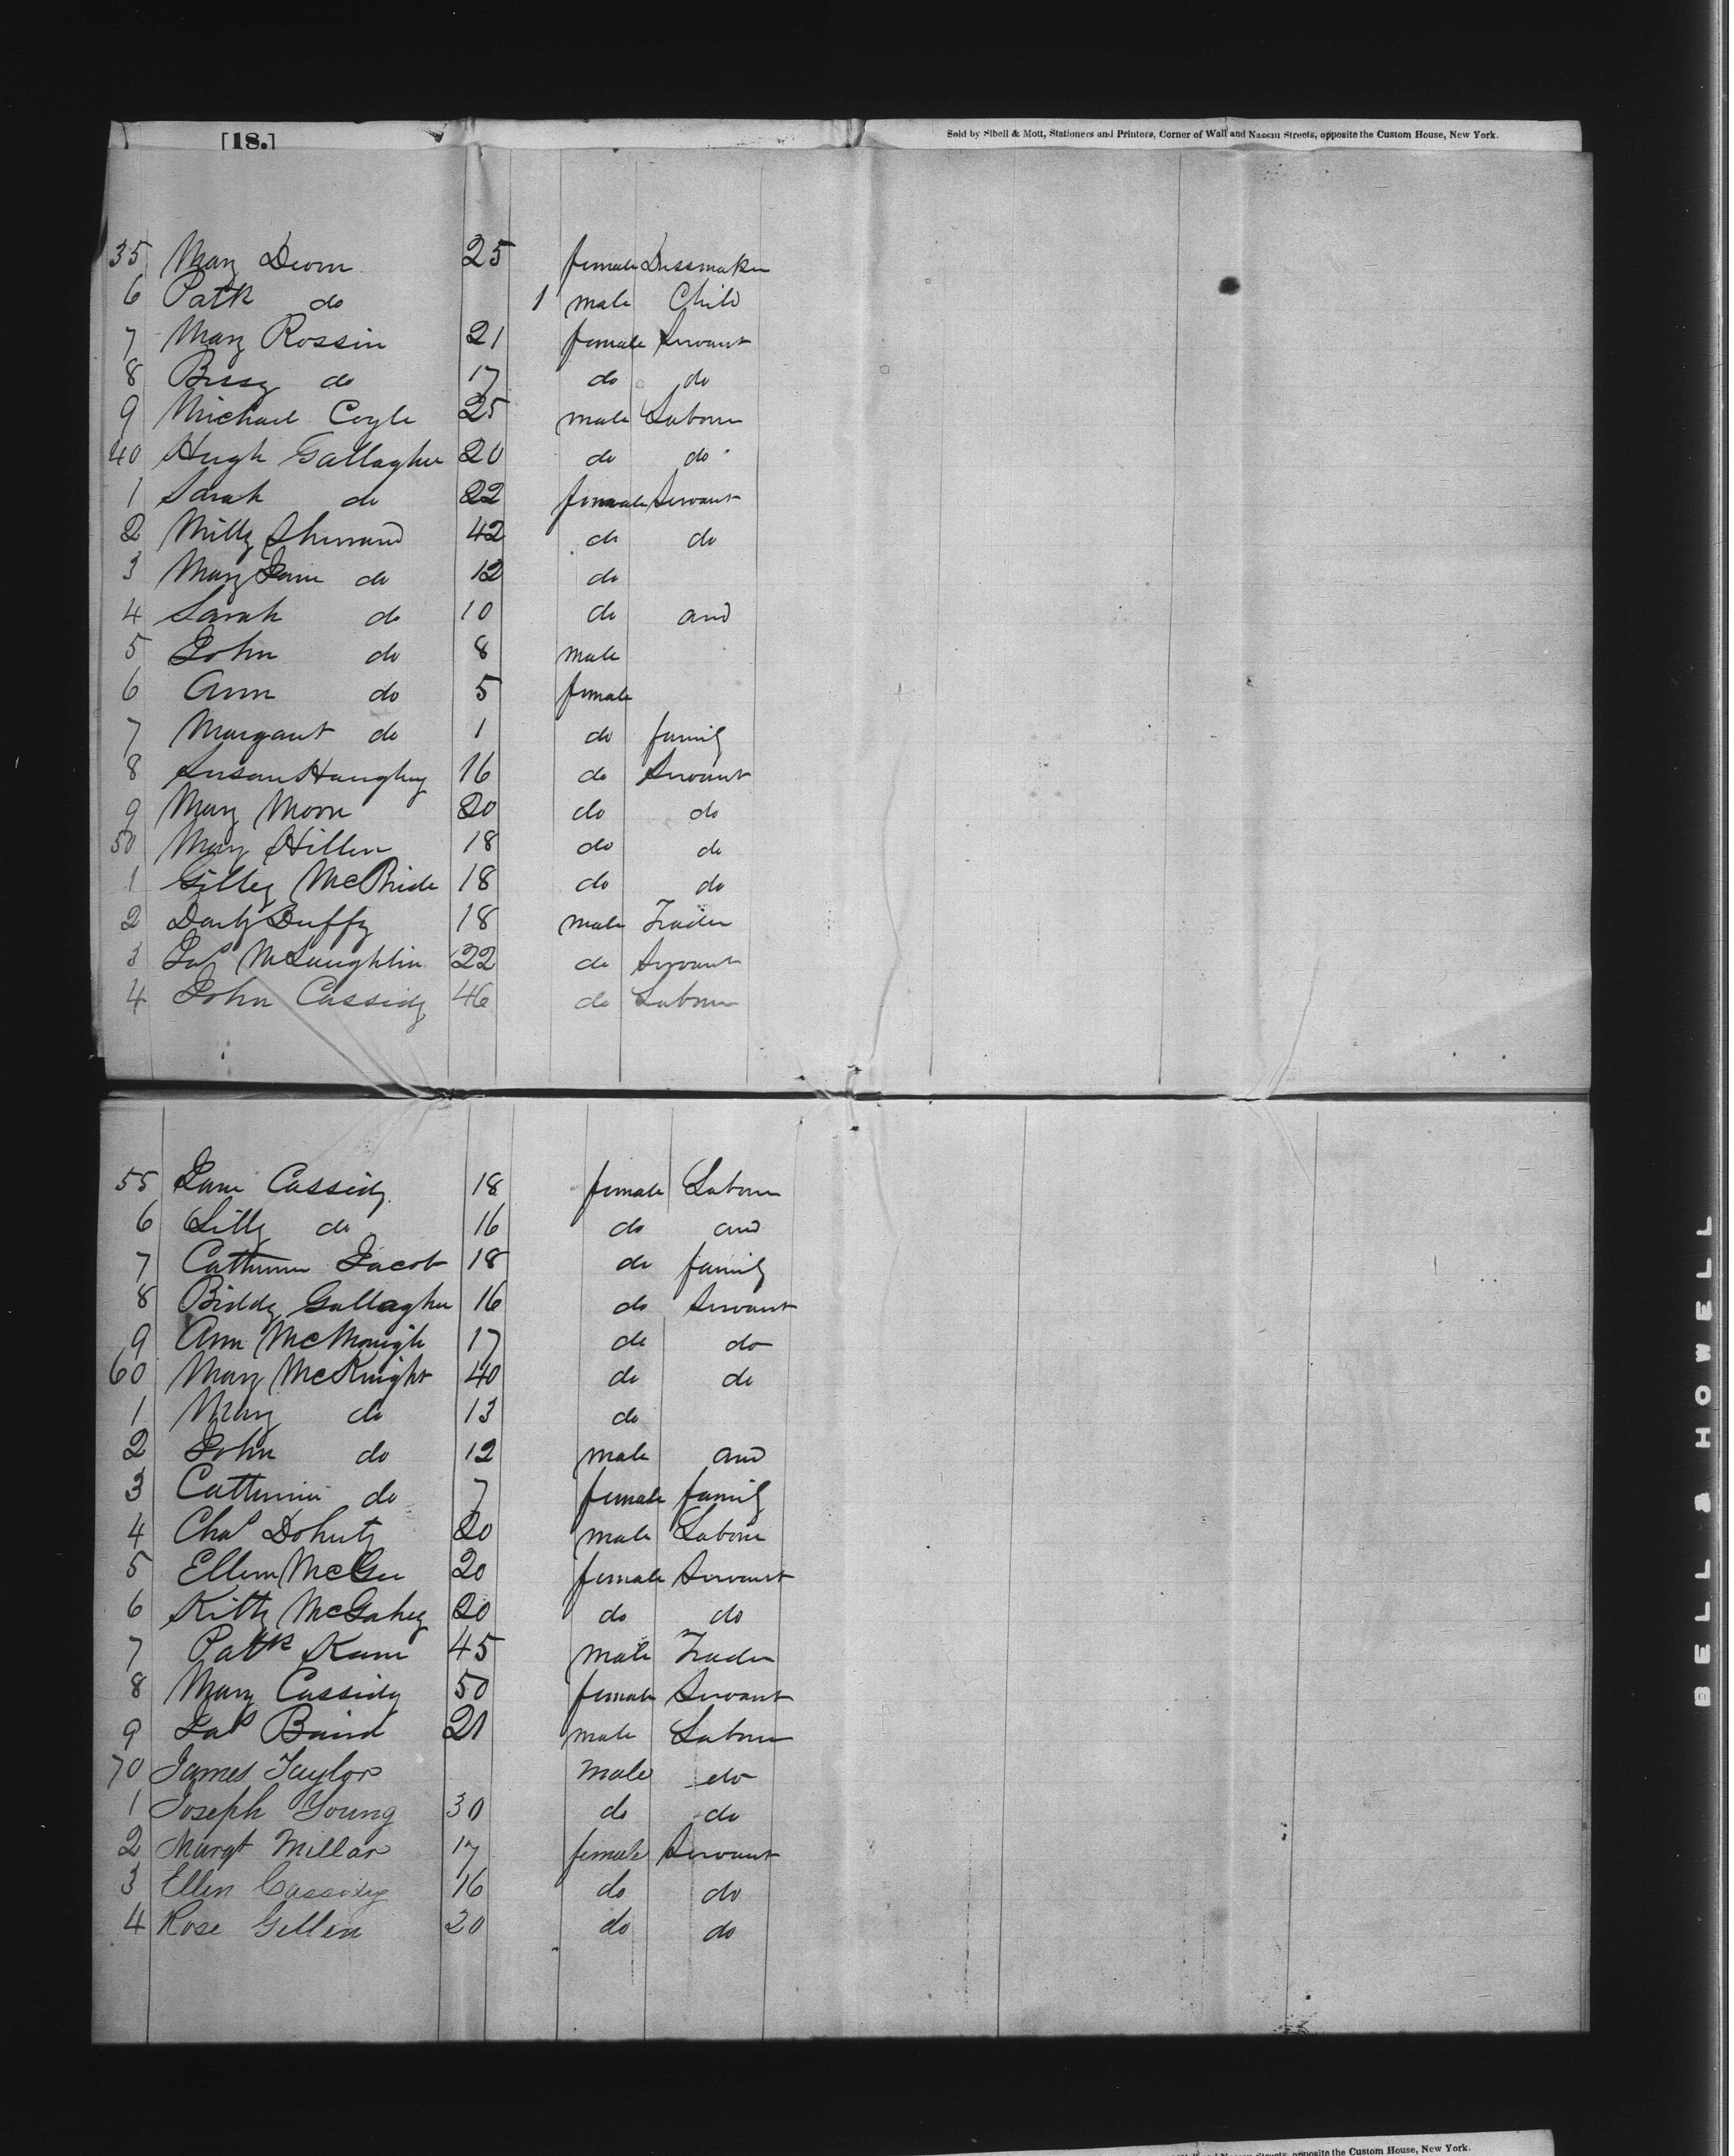 [18.]
Sold by Sibell & Mott, Stationers and Printers, Corner of Wall and Nassau Streets, opposite the Custom House, New York.
35 Mary 25 female Dressmaker
6 Patk do 1 male Child
7 Mary Rossin 21 female Servant
8 Bessy do 17 do do
9 Michael Coyle 25 male Labourer
40 Hugh Gallagher 20 do do
1 Sarah do 22 female Servant
2 Milly 42 do do
3 Mary Jane do 12 do
4 Sarah do 10 do and
5 John do 8 male
6 Ann do 5 female
7 Margaret do 1 do family
8 Susan Haughey 16 do Servant
9 Mary Moore 20 do do
50 Mary Hillen 18 do do
1 McBride 18 do do
2 Darby Duffy 18 male Trader
3 Jas McLaughlin 22 do Servant
4 John Cassidy 46 do Labourer
55 Jane Cassidy 18 female Labourer
6 Lilly do 16 do and
7 Catherine Jacob 18 do family
8 Biddy Gallagher 16 do Servant
9 Ann McMonigle 17 do do
60 Mary McKnight 40 do do
1 Mary do 13 do
2 John do 12 male and
3 Catherine do 7 female family
4 Chas Doherty 20 male Labourer
5 Ellen McGee 20 female Servant
6 Kitty McGahey 20 do do
7 Patk Kane 45 male Trader
8 Mary Cassidy 50 female Servant
9 Jas Baird 21 male Labourer
70 James Taylor male do
1 Joseph Young 30 do do
2 Margt Millar 17 female Servant
3 Ellen Cassidy 16 do do
4 Rose Gillen 20 do do
opposite the Custom House, New York.
BELL & HOWELL